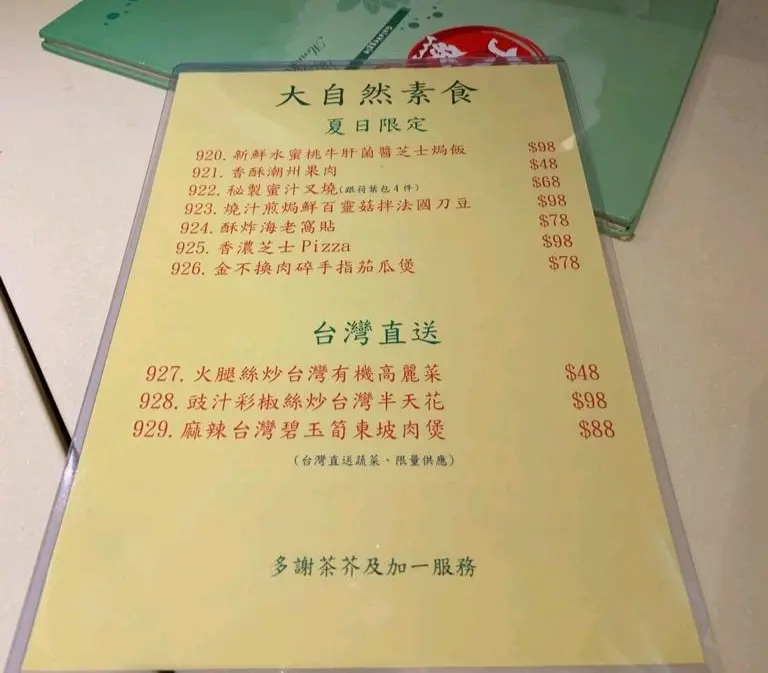 大自然素食
夏日限定
920. 新鮮水蜜桃牛肝菌醬芝士焗飯 $98
921. 香酥潮州果肉 $48
922. 秘製蜜汁叉燒(跟荷葉包4件) $68
923. 燒汁煎焗鮮百靈菇拌法國刀豆 $98
924. 酥炸海老窩貼 $78
925. 香濃芝士Pizza $98
926. 金不換肉碎手指茄瓜煲 $78
台灣直送
927. 火腿絲炒台灣有機高麗菜 $48
928. 豉汁彩椒絲炒台灣半天花 $98
929. 麻辣台灣碧玉筍東坡肉煲 $88
(台灣直送蔬菜、限量供應)
多謝茶芥及加一服務